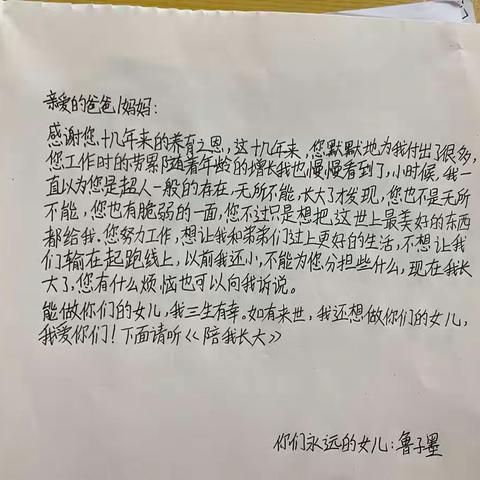 亲爱的爸爸妈妈：
感谢您十几年来的养育之恩，这十几年来，您默默地为我付出了很多，
您工作时的劳累随着年龄的增长我也慢慢看到了，小时候，我一
直以为您是超人一般的存在，无所不能，长大了才发现，您也不是无所
不能，您也有脆弱的一面，您不过只是想把这世上最美好的东西
都给我，您努力工作，想让我和弟弟们过上更好的生活，不想让我
们输在起跑线上，以前我还小，不能为您分担些什么，现在我长
大了，您有什么烦恼也可以向我诉说。
能做你们的女儿，我三生有幸。如有来世，我还想做你们的女儿，
我爱你们！下面请听《陪我长大》
你们永远的女儿：鲁子墨